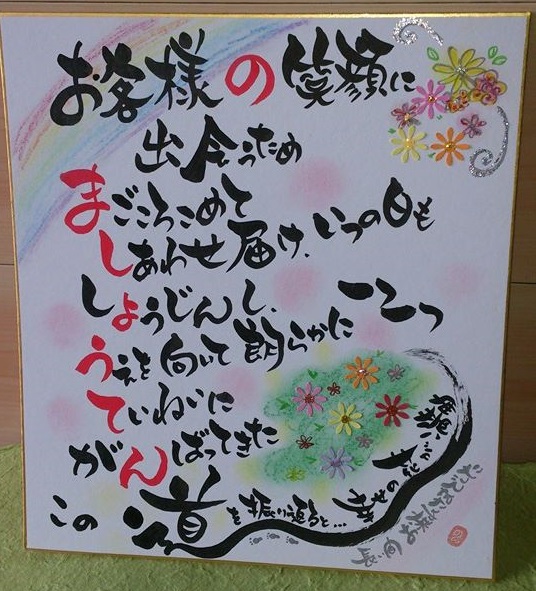 お客様の笑顔に
出会うため
まごころこめて
しあわせ届け、いつの日も
しょうじんし、一つ一つ
うえを向いて朗らかに
ていねいに
がんばってきた
この道を振り返ると…幸せの
花